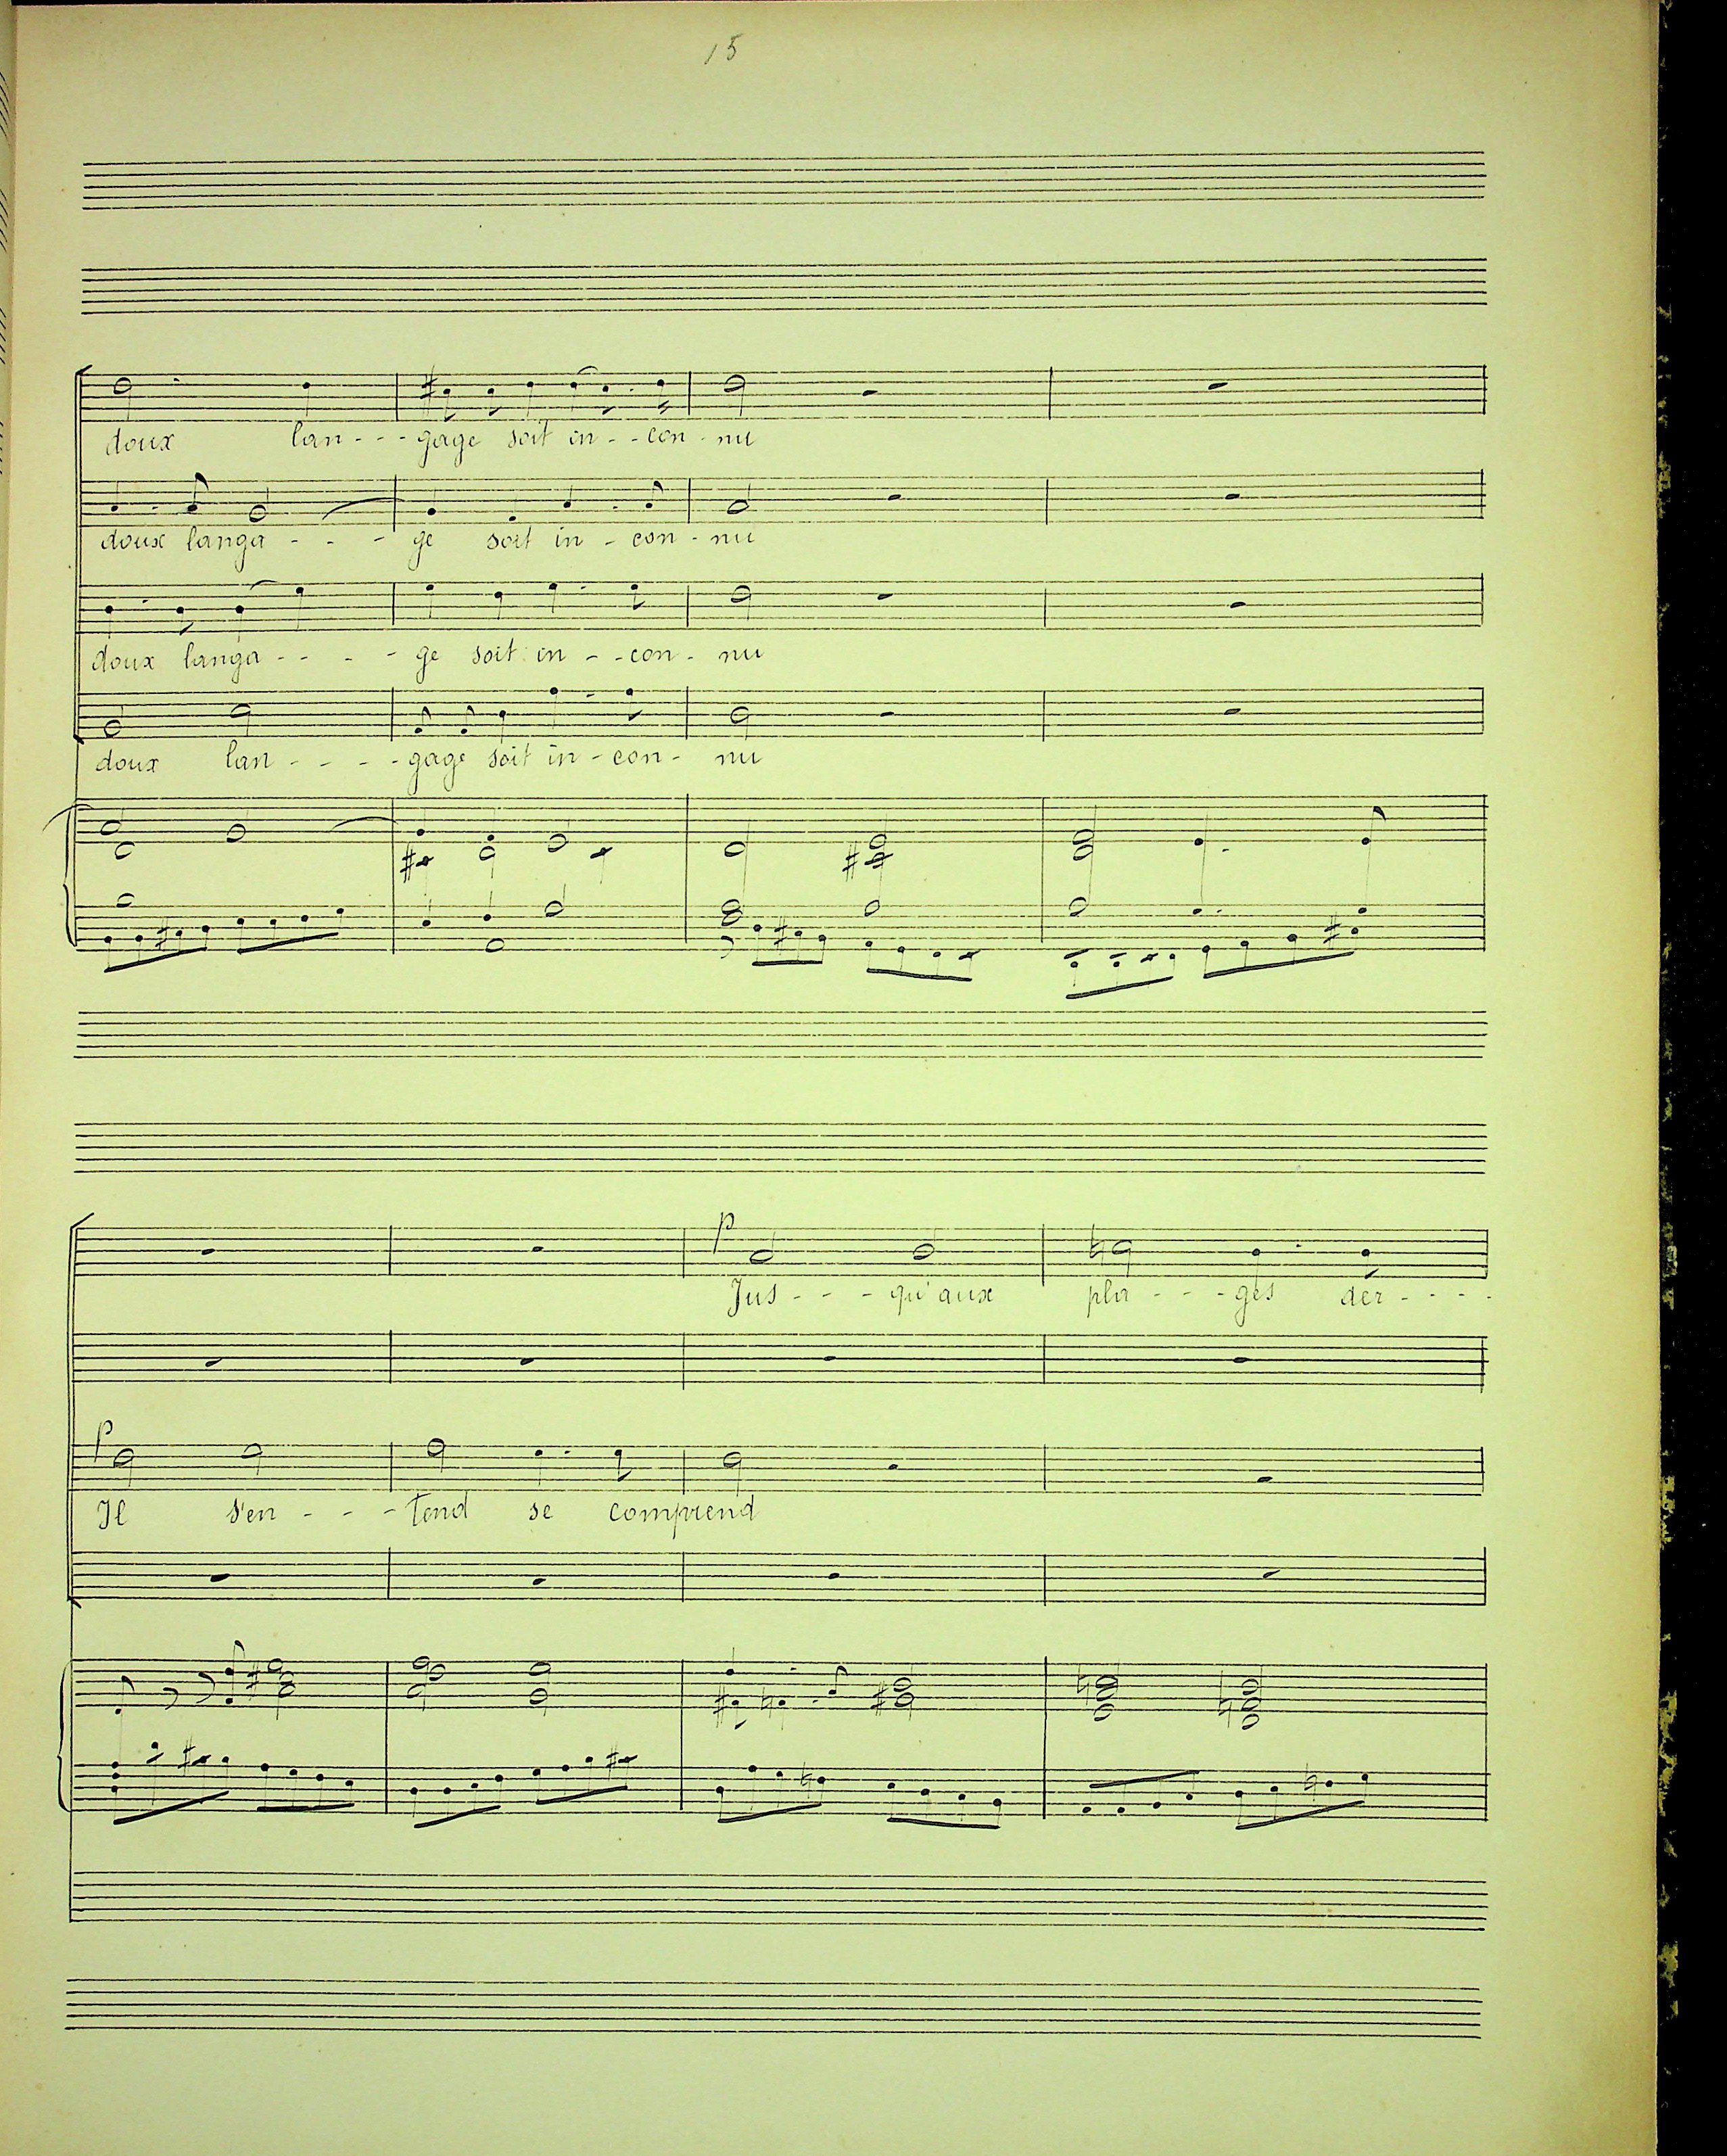 15
doux lan - - - gage soit in - - con - nu
doux langa - - - ge soit in - con - nu
doux langa - - - - ge soit in - - con - nu
doux lan - - - - gage soit in - con - nu
p
Jus - - - qu'aux pla - - - ges der - - - -
p
Il s'en - - - tend se comprend